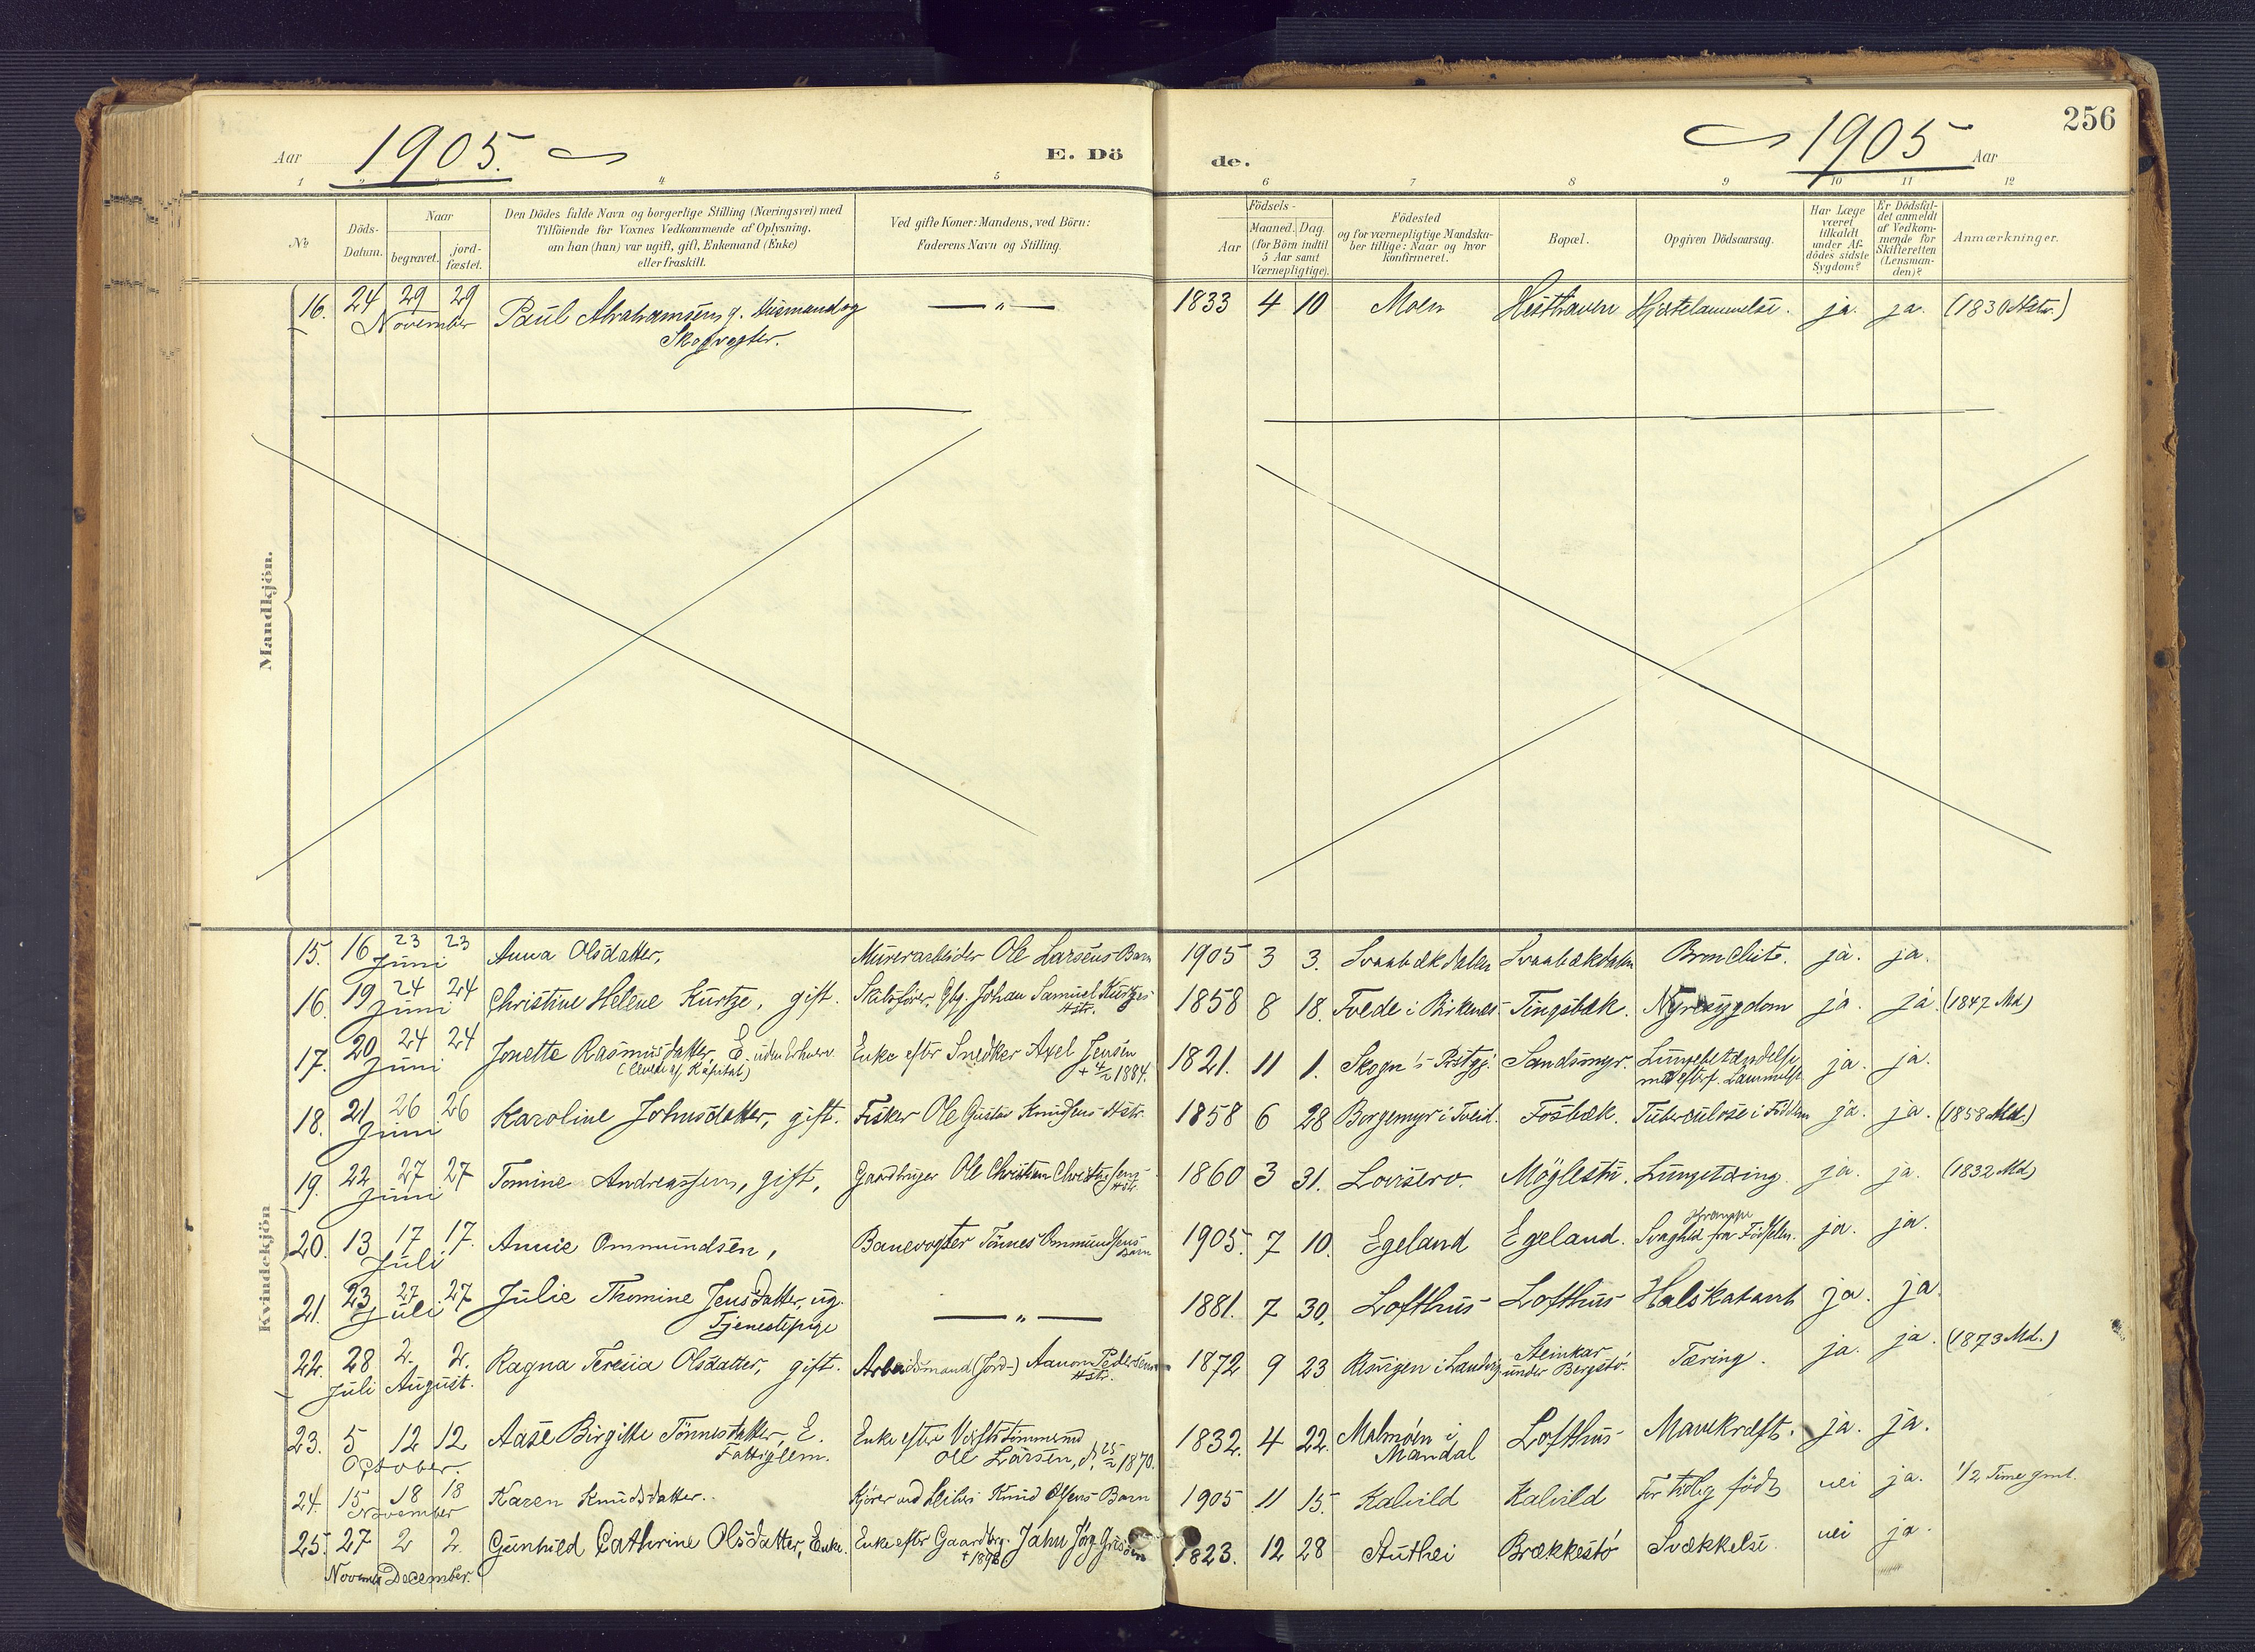 256
Aar 1905. E. Dö de. 1905 Aar
1 2 3 4 5 6 7 8 9 10 11 12
No
Döds-Datum.
Naar
begravet. jordfæstet.
Den Dödes fulde Navn og borgerlige Stilling (Næringsvei) med
Tilföiende for Voxnes Vedkommende af Oplysning,
om han (hun) var ugift, gift, Enkemand (Enke)
eller fraskilt.
Ved gifte Koner: Mandens, ved Börn:
Faderens Navn og Stilling.
Födsels-
Aar Maaned. Dag.
(for Börn indtil
5 Aar samt
Værnepligtige).
Födested
og for værnepligtige Mandska-
ber tillige: Naar og hvor
konfirmeret.
Bopæl.
Opgiven Dödsaarsag.
Har Læge
været
tilkaldt
under Af-
dödes sidste
Sygdom?
Er Dödsfal-
det anmeldt
af Vedkom-
mende for
Skifteretten
(Lensman-
den)?
Anmærkninger.
Mandkjön.
16. 24 29 29 Paul Abrahamsen, g. Husmand og — " — 1833 4 10 Moen Hesthaven Hjertelammelse. ja. ja. (1830 Mstr.)
November
Skogvogter.
Kvindekjön
15. 16 23 23 Anna Olsdatter, Murerarbeider Ole Larsens Barn 1905 3 3. Svaabækdalen Svaabækdalen Bronchit. ja. ja.
Juni
16. 19 24 24 Christine Helene Kurtze, gift. Skibsförer, Gbg. Johan Samuel Kurtzes 1858 8 18. Tvede i Birkenes Tingsbæk. Nyresygdom ja. ja. (1847 Md)
Juni Hstr.
17. 20 24 24 Jonette Rasmusdatter, E. uden Erhverv. Enke efter Snedker Axel Jensen 1821. 11 1. Skogn Prstgj. Sandsmyr. Lungebetændelse ja. ja.
Juni (Levede af Kapital) + 4/2 1884. med efterf. Lammelse
18. 21 26 26 Karoline Johnsdatter, gift. Fisker Ole Gustav Knudsens Hstr. 1858 6 28 Borgemyr i Tveid. Fosbæk. Tuberculose i Födden ja. ja. (1858 Md.)
Juni
19. 22 27 27 Tomine Andreassen, gift, Gaardbruger Ole Christian Christensens 1860 3 31. Loviserv. Möglestu. Lungetæring ja. ja. (1832 Md)
Juni Hstr.
20. 13 17 17. Annie Ommundsen, Banevogter Tönnes Ommundsens 1905. 7 10. Egeland Egeland. Svaghed fra Födselen. ja. ja.
Juli Barn Krampe
21. 23 27 27 Julie Thomine Jensdatter, ug. — " — 1881. 7 30. Lofthus Lofthus Halskatarrh ja. ja.
Juli Tjenestepige
22. 28 2. 2. Ragna Teresia Olsdatter, gift. Arbeidsmand (Jord-) Aanon Pedersens 1872 9 23 Risvigen i Landvig Steinkar Tæring. ja. ja. (1873 Md.)
Juli August. Hstr. under Bergstö.
23. 5 12 12 Aase Birgitte Tönnesdatter, E. Enke efter Verftstimmermd 1832. 4 22. Malmöen i Lofthus Mavekræft. ja. ja.
October. Fattiglem. Ole Larsen, d. 25/2 1870. Mandal
24. 15 18 18 Karen Knudsdatter. Kjörer ved Knud Olsens Barn 1905 11 15. Kalvild Kalvild For tidlig födt nei ja. 1/2 Time gml.
November
25. 27 2 2. Gunhild Cathrine Olsdatter, Enke. Enke efter Gaardbrg. 1823. 12 28 Stuthei Brækkestö Svækkelse. nei ja.
November December. + 1898